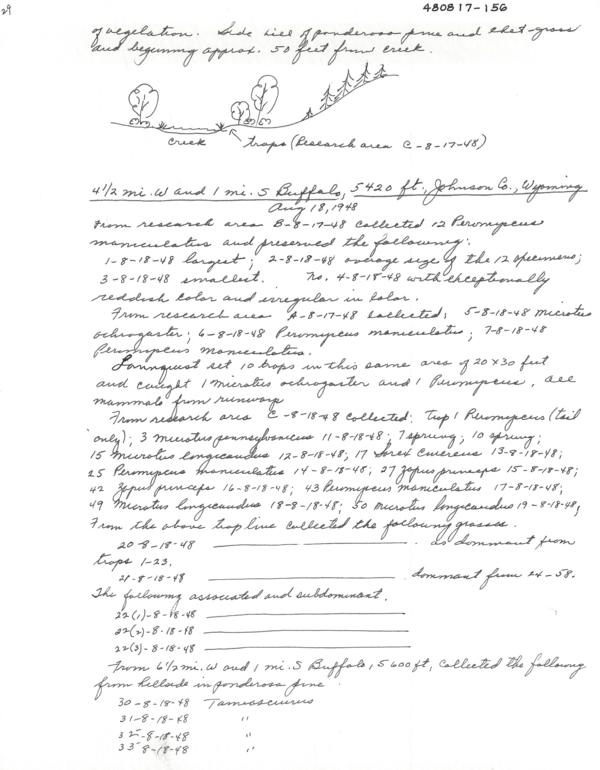 29
480817-156
of vegetation. Side hill of ponderosa pine and cheat-grass
and beginning approx. 50 feet from creek.
creek
traps (Research area C-8-17-48)
4 1/2 mi. W and 1 mi. S Buffalo, 5420 ft., Johnson Co., Wyoming
Aug 18, 1948
From research area B-8-17-48 collected 12 Peromyscus
maniculatus and preserved the following:
1-8-18-48 largest; 2-8-18-48 average size of the 12 specimens;
3-8-18-48 smallest. No. 4-8-18-48 with exceptionally
reddish color and irregular in color.
From research area A-8-17-48 collected; 5-8-18-48 Microtus
ochrogaster; 6-8-18-48 Peromyscus maniculatus; 7-8-18-48
Peromyscus maniculatus.
set 10 traps in this same area of 20x30 feet
and caught 1 Microtus ochrogaster and 1 Peromyscus. All
mammals from runways
From research area C-8-18-48 collected: Trap 1 Peromyscus (tail
only); 3 Microtus pennsylvanicus 11-8-18-48; 7 sprung; 10 sprung;
15 Microtus longicaudus 12-8-18-48; 17 Sorex cinereus 13-8-18-48;
25 Peromyscus maniculatus 14-8-18-48; 27 Zapus princeps 15-8-18-48;
42 Zapus princeps 16-8-18-48; 43 Peromyscus maniculatus 17-8-18-48;
49 Microtus longicaudus 18-8-18-48; 50 Microtus longicaudus 19-8-18-48,
From the above trap line collected the following grasses.
20-8-18-48 . as dominant from
traps 1-23.
21-8-18-48 . dominant from 24-58.
The following associated and subdominant.
22(1)-8-18-48
22(2)-8-18-48
22(3)-8-18-48
From 6 1/2 mi. W and 1 mi. S Buffalo, 5600 ft, collected the following
from hillside in ponderosa pine
30-8-18-48 Tamiasciurus
31-8-18-48 "
32-8-18-48 "
33-8-18-48 "